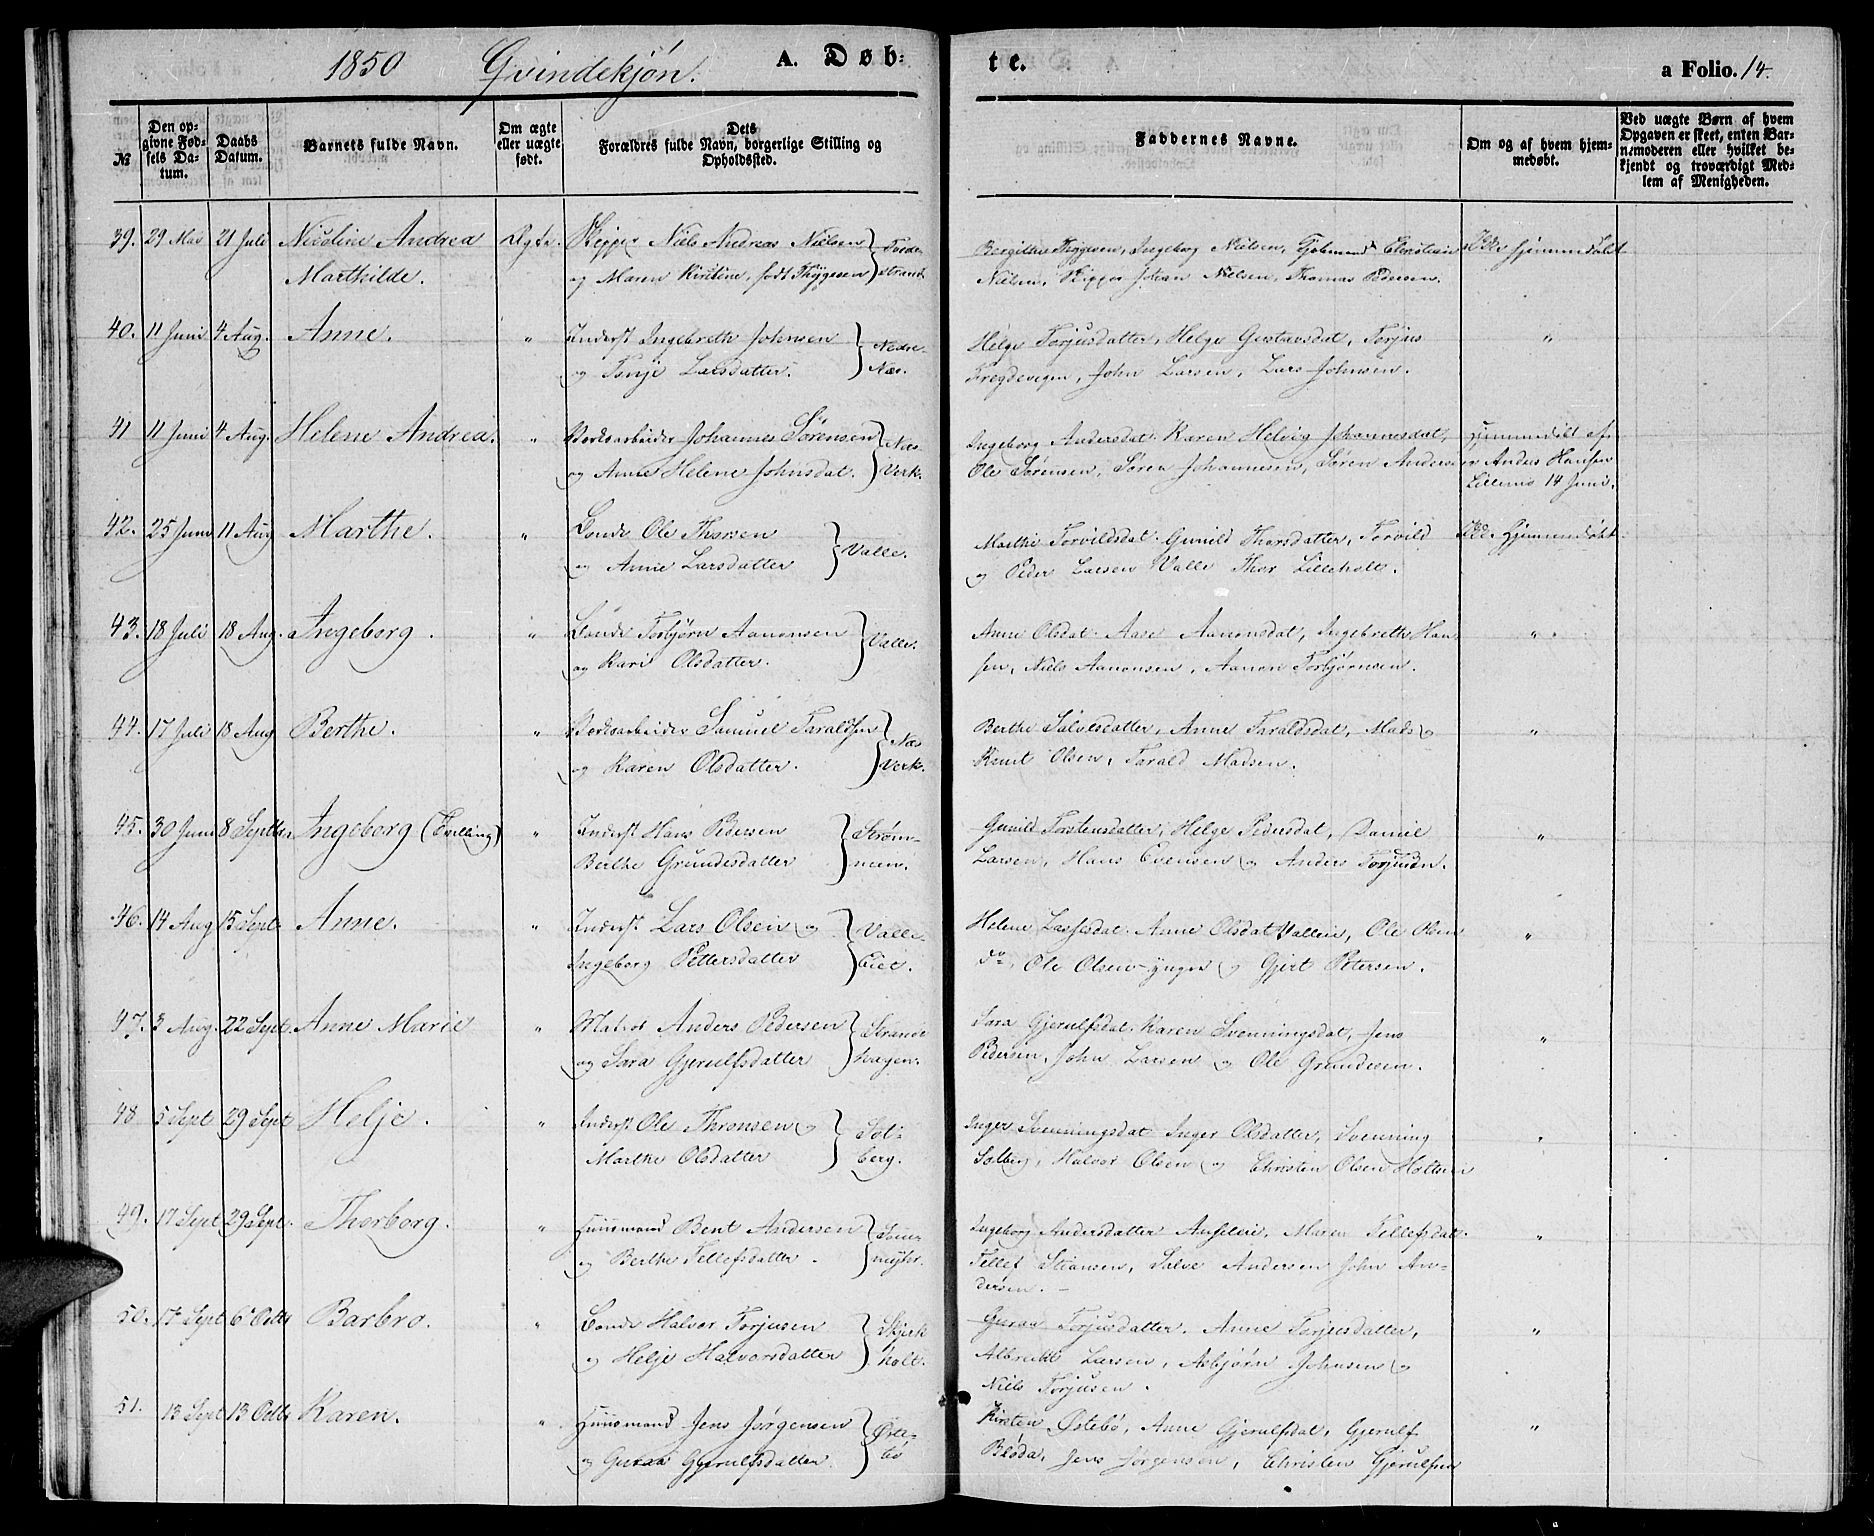 1850 Qvindekjøn. A. Døb-
te. a Folio. 14.
№
Den op-
givne Fød-
sels Da-
tum.
Daabs
Datum.
Barnets fulde Navn.
Om ægte
eller uægte
født.
Dets
Forældres fulde Navn, borgerlige Stilling og
Opholdssted.
Faddernes Navne.
Om og af hvem hjem-
medøbt.
Ved uægte Børn af hvem
Opgaven er skeet, enten Bar-
nemoderen eller hvilket be-
kjendt og troværdigt Med-
lem af Menigheden.
39. 29 Mai 21 Juli Nicoline Andrea Ægte. Skipper Niels Andreas Nielsen
Marthilde. og Maren Kirstine, født Thygesen
Thygesen, Ingeborg Nielsen, Christian
Nielsen, Skipper Johan Nielsen, Thomas Pedersen.
Hjemmedøbt
40. 11 Juni 4 Aug. Anne. " Inderst Ingebreth Johnsen Nedre
og Larsdatter. Næs.
Helge Torjusdatter, Helge Gustavsdat, Torjus
John Larsen, Lars Johnsen.
"
41 11 Juni 4 Aug. Helene Andrea. " Johannes Sørensen Næs
og Anne Helene Johnsdat. Verk.
Ingeborg Andersdat. Karen Helvig Johannesdat,
Ole Sørensen, Søren Johannesens, Søren Andersen
Hjemmedøbt af
Anders Hansen
14 Juni.
42. 25 Juni 11 Aug Marthe. " Bonde Ole Thorsen Valle.
og Anne Larsdatter
Marthe Torvildsdat. Gunild Thorsdatter, Torvild
og Peder Larsen Valle Thor Lilleholt.
Hjemmedøbt.
43. 18 Juli 18 Aug. Ingeborg. " Bonde Torbjørn Aanonsen Valle.
og Kari Olsdatter.
Anne Olsdat. Aase Aanonsdat, Ingebreth Han-
sen, Niels Aanonsen, Aanon Torbjørnsen.
"
44. 17 Juli 18 Aug Berthe. " Samuel Taraldsen Næs
og Karen Olsdatter. Verk.
Berthe Salvesdatter, Anne Taraldsdat, Mads og
Knut Olsen, Tarald Madsen.
"
45. 30 Juni 8 Septbr Ingeborg (Tvilling) " Inderst Hans Pedersen Strøm-
Berthe Grundesdatter men.
Gunild Torstensdatter, Helge Pedersdat, Daniel
Larsen, Hans Evensen og Anders Torjusn.
"
46. 14 Aug 15 Sept. Anne. " Inderst Lars Olsen og Valle
Ingeborg Pettersdatter Eiet.
Helene Lassesdat. Anne Olsdat Valleie, Ole Olsen
do, Ole Olsen ynger og Gjert Petersen.
"
47. 3 Aug. 22 Sept. Anne Marie " Matros Anders Pedersen Strand
og Sara Gjerulfsdatter vægen.
Sara Gjerulfsdat. Karen Svenningsdat, Jens
Pedersen, John Larsen og Ole Grundesen.
"
48. 5 Sept 29 Sept Helje. " Inderst Ole Thronsen og Sol-
Marthe Olsdatter berg.
Inger Svenningsdat Inger Olsdatter, Svenning
Solberg, Halvor Olsen og Christen Olsen Holteie
"
49. 17 Sept 29 Sept. Thorborg. " Huusmand Bent Andersen
og Berthe Tellefsdatter. myhr.
Ingeborg Andersdatter Maren Tellefsdatr.
Tellef Salve Andersen John An-
dersen. –
"
50. 17 Sept 6 Octbr Barbro. " Bonde Halvor Torjusen Skjerk-
og Helje Halvorsdatter holt.
Guroe Torjusdatter. Anne Torjusdatter,
Albrecht Larsen, Asbjørn Johnsen og
Niels Torjusen.
"
51. 13 Sept 13 Octbr Karen. " Huusmand Jens Jørgensen Øste-
og Guroe Gjerulfsdatter. bø
Kirsten Østebø, Anne Gjerulfsdat, Gjerulf
Jens Jørgensen, Christen Gjerulfsen
"